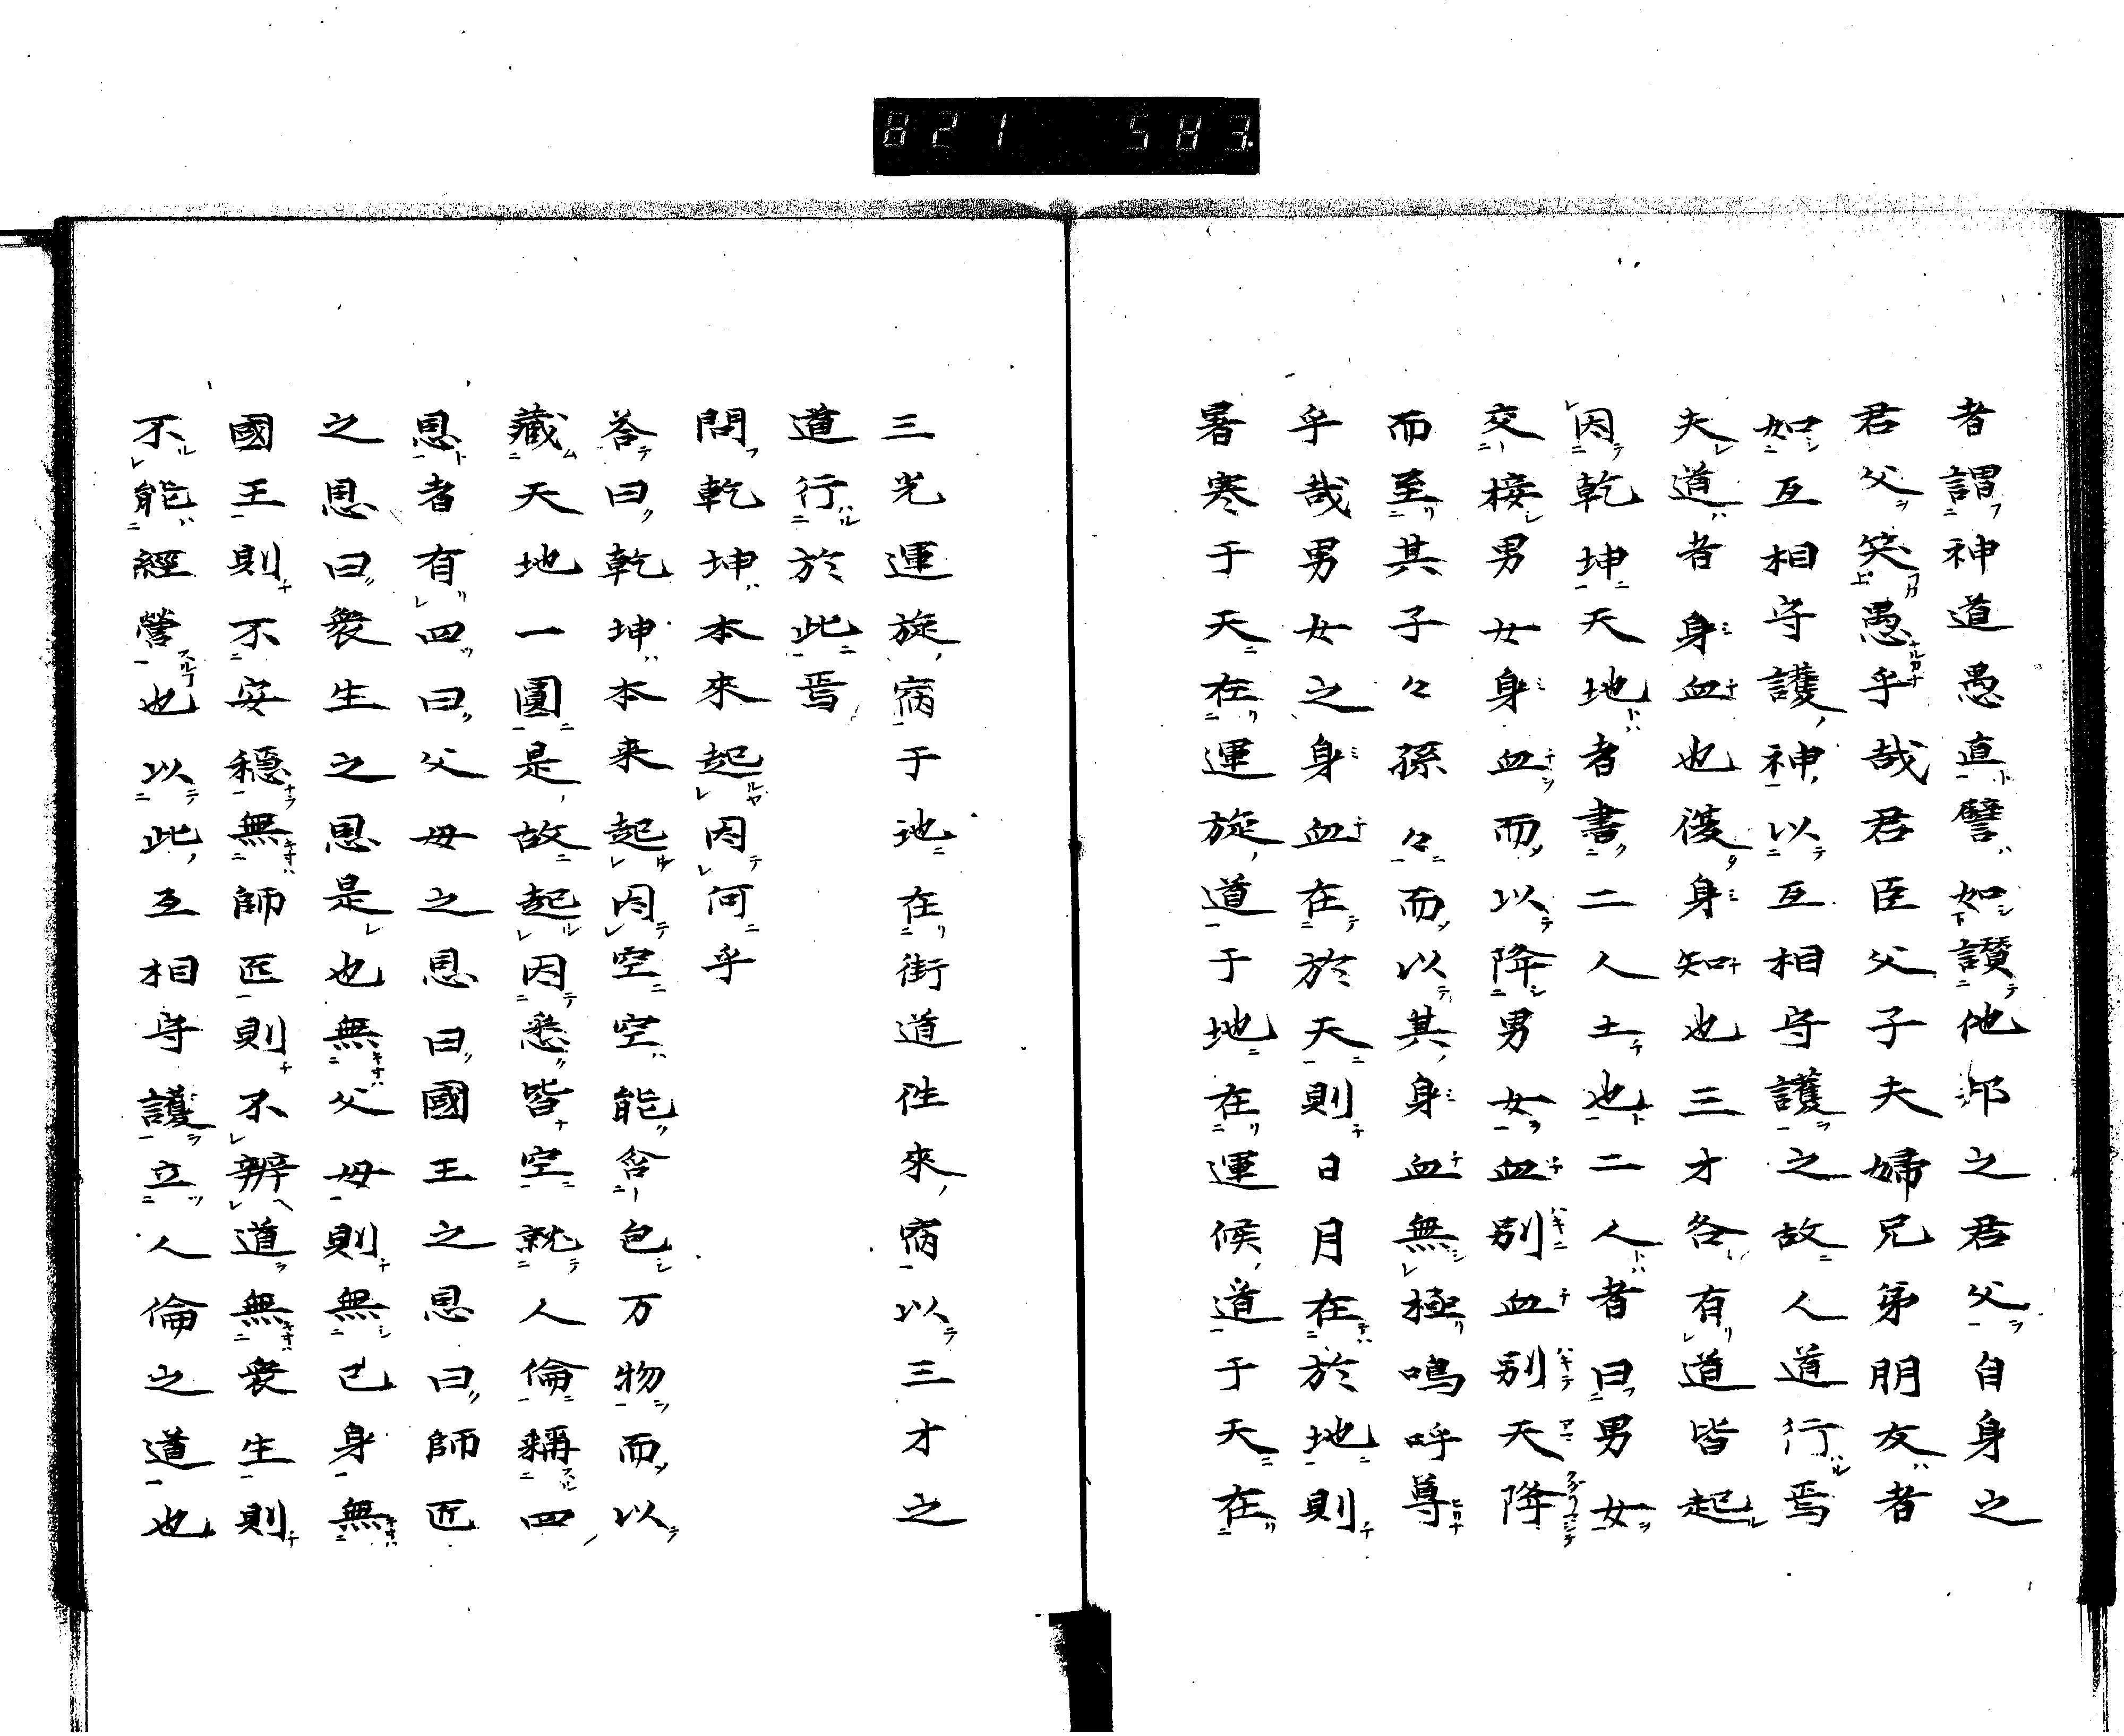 821 583
者謂神道愚直譬如讃他邦之君父自身之
君父笑愚乎哉君臣父子夫婦兄弟朋友者
如互相守護神以互相守護之故人道行焉
夫道者身血也復身知也三才各有道皆起
因乾坤天地者書二人土也二人者曰男女
交接男女身血而以降男女血別血別天降
而至其子々孫々而以其身血無極鳴呼尊
乎哉男女之身血在於天則日月在於地則
暑寒于天在運旋道于地在運候道于天在
三光運旋病于地在街道往來病以三才之
道行於此焉
問乾坤本來起因何乎
答曰乾坤本来起因空空能含包万物而以
藏天地一圓是故起因悉皆空就人倫稱四
恩者有四曰父母之恩曰國王之恩曰師匠
之恩曰衆生之恩是也無父母則無己身無
國王則不安穩無師匠則不辨道無衆生則
不能經營也以此互相守護立人倫之道也